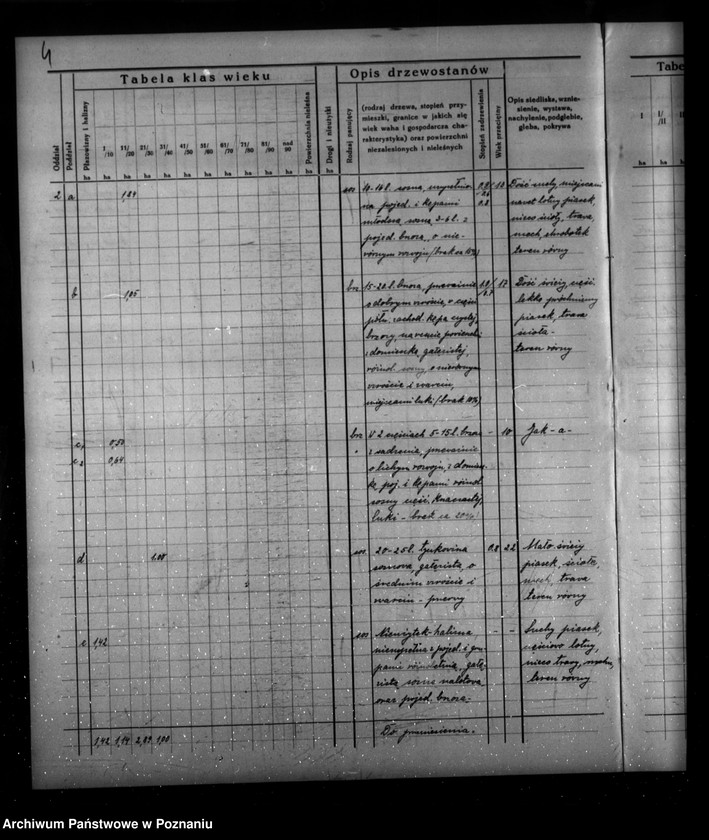 4
Tabela klas wieku
Opis drzewostanów
Tabe
Oddział
Poddział
Płazowizny i halizny
I /10
11/ /20
21/ /30
31/ /40
41/ /50
51/ /60
61/ /70
71/ /80
81/ /90
nad 90
Powierzchnia nieleśna
Drogi i nieużytki
Rodzaj panujący
(rodzaj drzewa, stopień przymieszki, granice w jakich się wiek waha i gospodarcza charakterystyka) oraz powierzchni niezalesionych i nieleśnych
Stopień zadrzewienia
Wiek przeciętny
Opis siedliska, wzniesienie, wystawa, nachylenie, podglebie, gleba, pokrywa
ha ha ha ha ha ha ha ha ha ha ha ha ha
2 a 1,84 sos 14-16 l. sosna,
pojed. i kępami
młodsza sosna 3-6 l. z
pojed. brzozą, o nie-
równym rozwoju (brak ca 10%)
Dość suchy, miejscami
nawet lotny piasek,
nieco ścioły, trawa,
mech, chrobotek
teren równy
b 1,05 brz 15-20 l. brzoza, przeważnie
z dobrym wzroście, w części
półn. zachod. kępa czystej
brzozy, na reszcie powierzchni
z domieszką, gałęzistej,
sosny, o nierównym
wzroście i zwarciu,
miejscami luki (brak 10%)
17
Dość świeży, część.
lekko próchniczny
piasek, trawa
ścioła
teren równy
c1 0,50 brz W 2 częściach 5-15 l. brzoza - 10 Jak -a-
c2 0,64 " z sadzenia, przeważnie
o lichym rozwoju, z domiesz-
ką poj. i kępami
sosny część. krzaczastej,
luki - brak ca 20%
d 1.00 sos 20-25 l. tyczkowina 0.8 22
sosnowa, gałęzista, o
średnim wzroście i
zwarciu - przerwy
Mało świeży
piasek, ścioła,
mech, trawa
teren równy
e 1,42 sos Nieużytek-halizna - -
niezupełna z pojed. i gru-
pami gałę-
zistą sosną nalotową
oraz pojed. brzozą.
Suchy piasek,
częściowo lotny,
nieco trawy, mchu,
teren równy
1,42 1,14 2,89 1,00 Do przeniesienia.
Archiwum Państwowe w Poznaniu